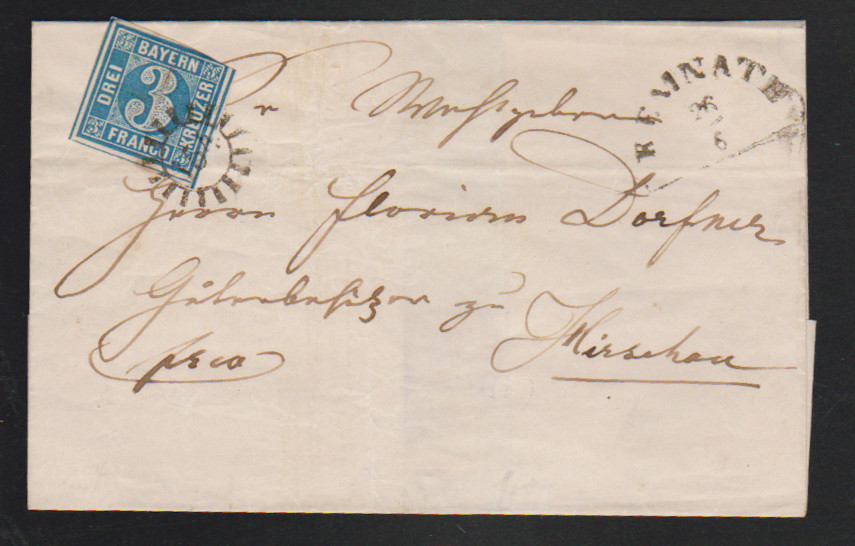 BAYERN
DREI
3
KREUZER
FRANCO
KEMNATH
26
6
Sr Wohlgeboren
Herrn Florian Dorfner
Gutsbesitzer zu Hirschau
frco